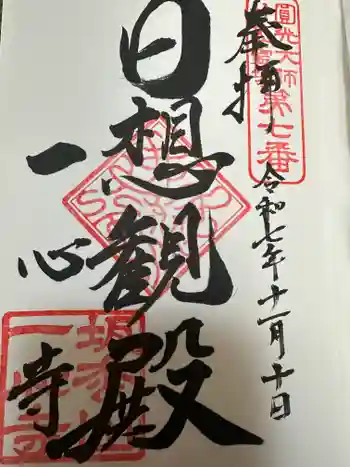 圓光大師
第七番
奉拝
令和七年十一月十日
日想観殿
一心寺